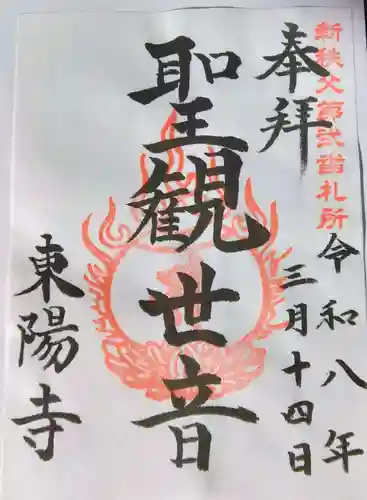 新秩父第弐番札所
奉拝
令和八年
三月十四日
聖観世音
東陽寺